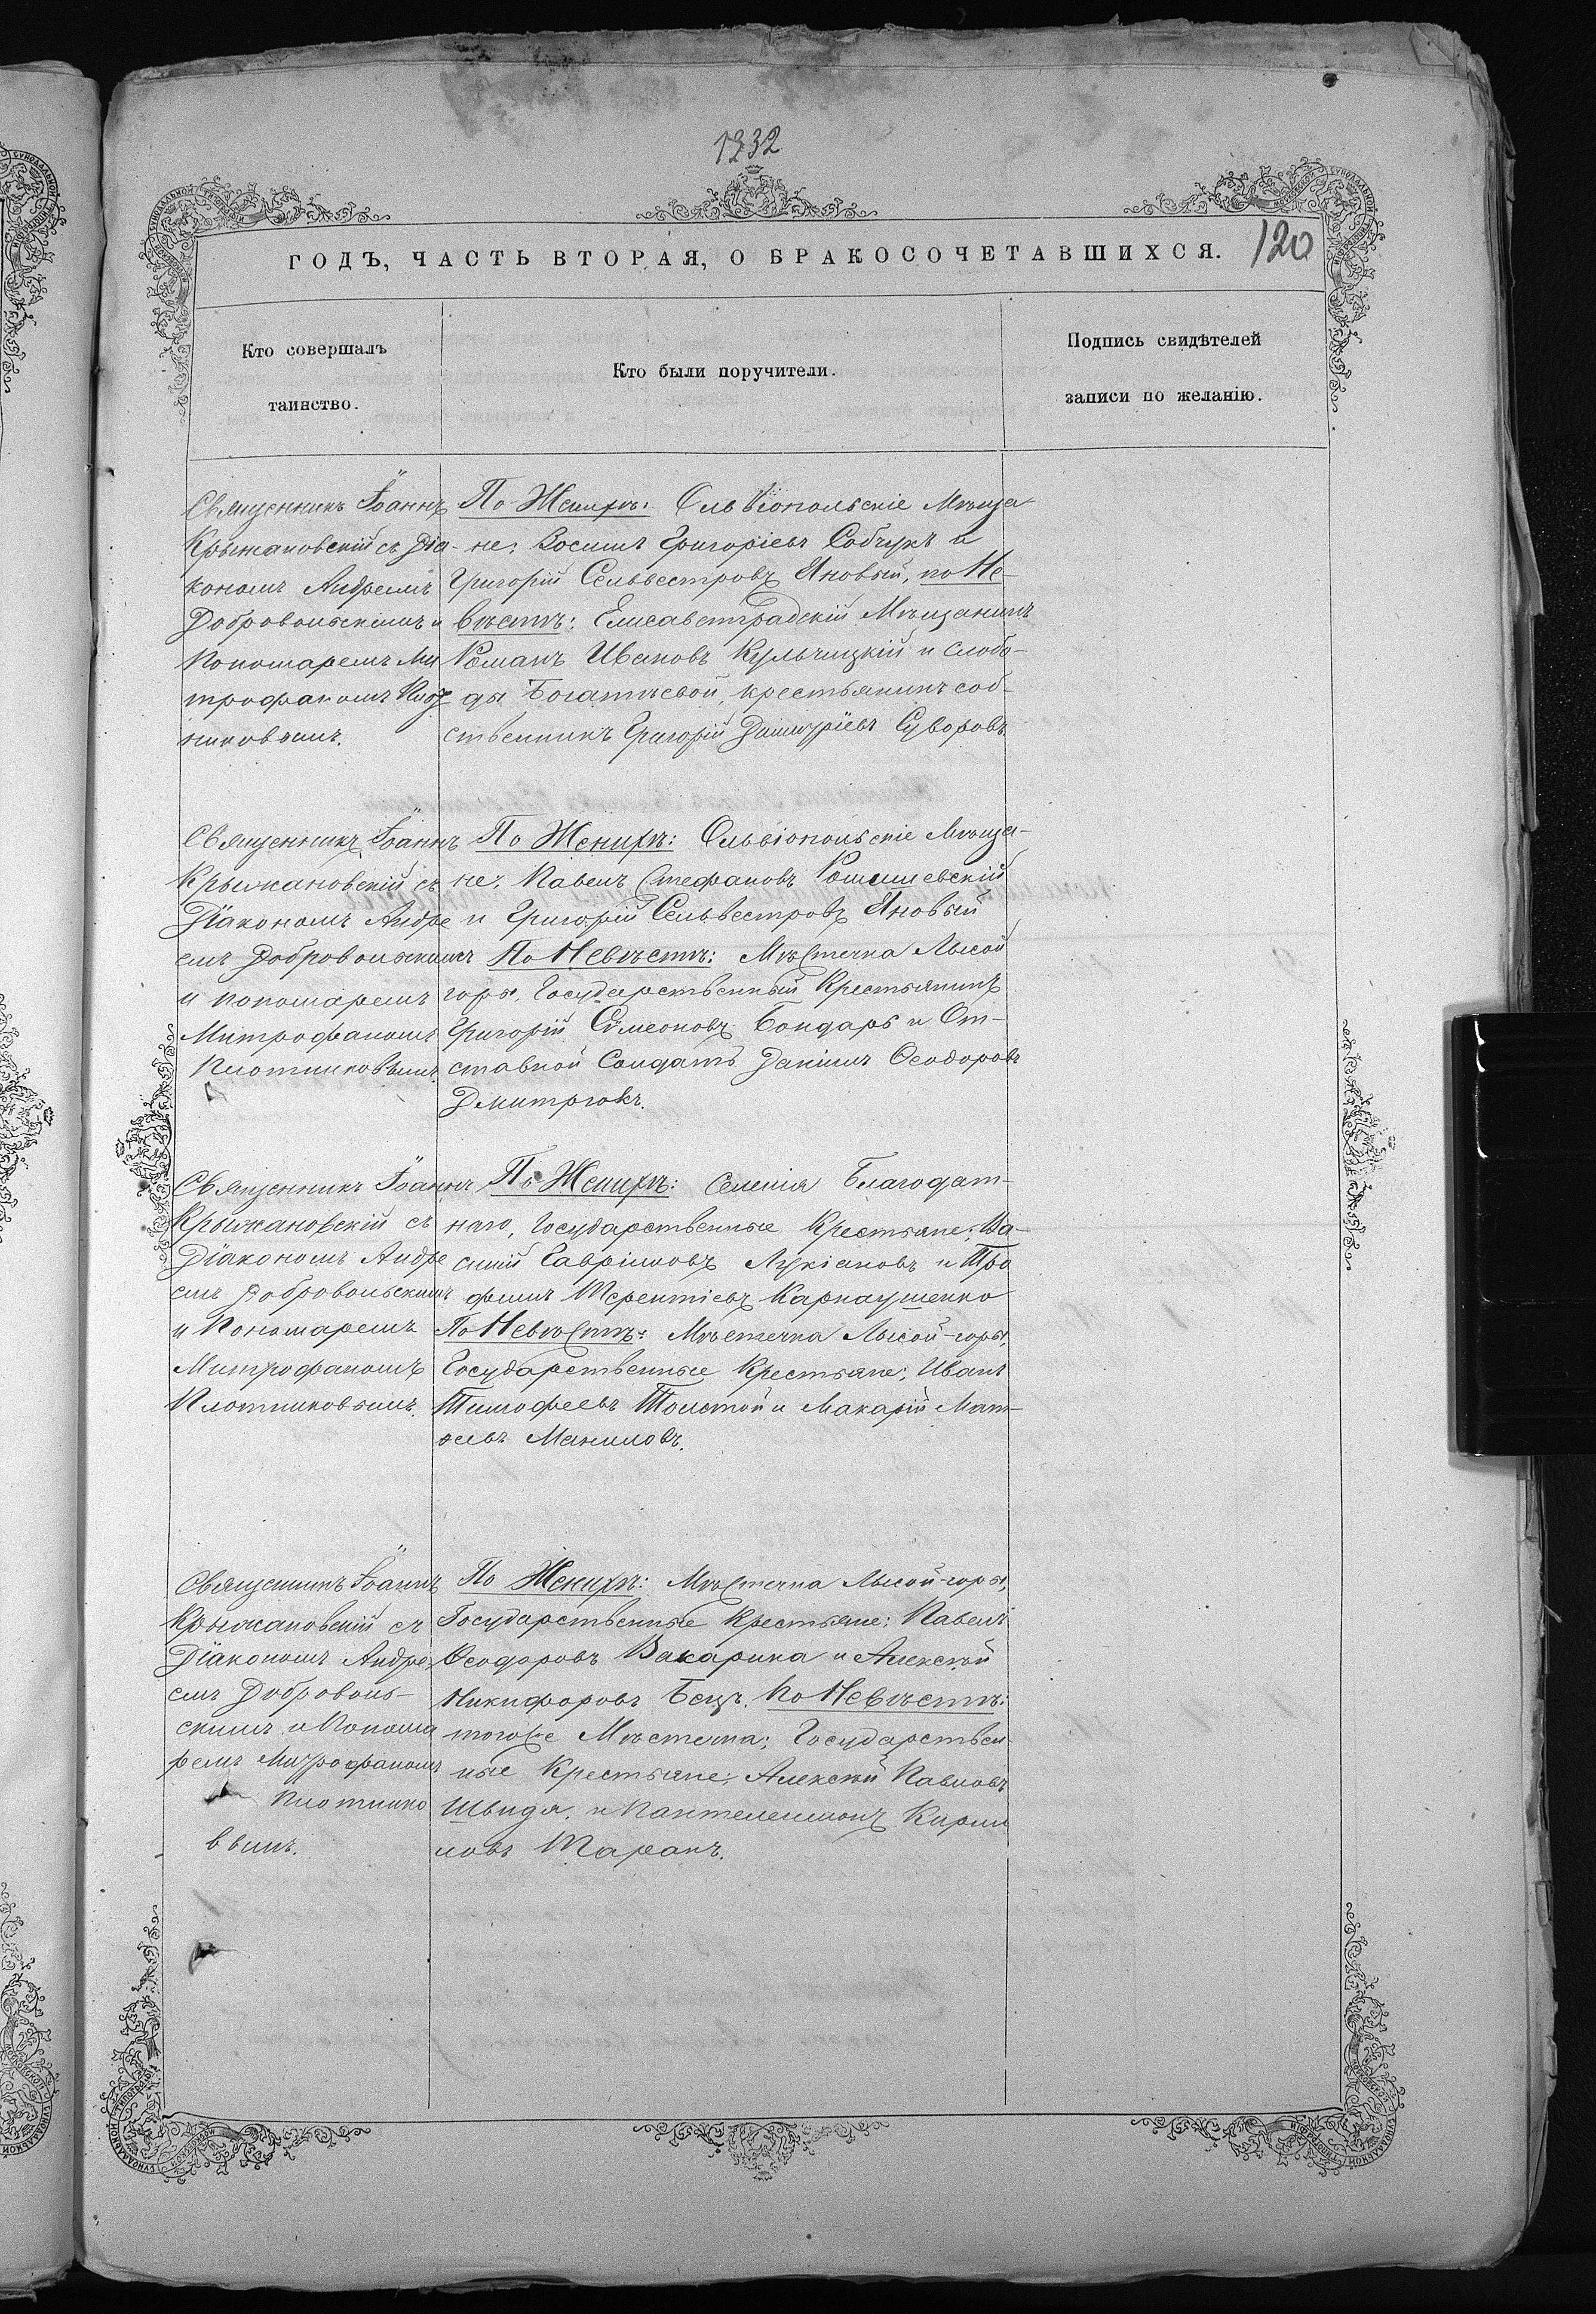 1232
120
ГОДЪ, ЧАСТЬ ВТОРАЯ, О БРАКОСОЧЕТАВШИХСЯ.
Кто совершалъ
таинство.
Кто были поручители.
Подпись свидѣтелей
записи по желанію.
Священникъ Іоаннъ
Крыжановскій съ Діа-
кономъ Андреемъ
Добровольскимъ и
Пономаремъ Ми
трофаномъ Плот
никовымъ.
По Женихѣ: Ольвіопольскіе Мѣща-
не: Зосимъ Григорьевъ Собчукъ и
Григорій Сельвестровъ Яновый, по Не-
вѣстѣ: Елисаветградскій Мѣщанинъ
Романъ Ивановъ Кульчицкій и слобо-
ды Богатыевой, крестьянинъ соб-
ственникъ Григорій Димитріевъ Суворовъ
Священникъ Іоаннъ
Крыжановскій съ
Діакономъ Андре
емъ Добровольскимъ
и пономаремъ
Митрофаномъ
Плотниковымъ.
По Женихѣ: Ольвіопольскіе Мѣща-
не: Павелъ Стефановъ
и Григорій Сельвестровъ Яновый
По Невѣстѣ: Мѣстечка Лысой
горы, Государственный Крестьянинъ
Григорій Симеоновъ Бондарь и От-
ставной Солдатъ Даніилъ Ѳеодоровъ
Дмитрюкъ.
Священникъ Іоаннъ
Крыжановскій съ
Діакономъ Андре
емъ Добровольскимъ
и Пономаремъ
Митрофаномъ
Плотниковымъ.
По Женихѣ: Селенія Благодат-
наго, Государственные Крестьяне: Ва-
силій Гавріиловъ Лукіановъ и Тро
фимъ Терентіевъ Карнаушенко
По Невѣстѣ: Мѣстечка Лысой-горы,
Государственные Крестьяне: Иванъ
Тимофеевъ Толстой и Макарій Мат-
ѳеевъ Маниловъ.
Священникъ Іоаннъ
Крыжановскій съ
Діакономъ Андре
емъ Доброволь-
скимъ и Понома
ремъ Митрофаномъ
Плотнико
вымъ.
По Женихѣ: Мѣстечка Лысой-горы,
Государственные Крестьяне: Павелъ
Ѳеодоровъ Вакарика и Алексѣй
Никифоровъ Бецъ. По Невѣстѣ:
тогоже Мѣстечка: Государствен
ные Крестьяне: Алексѣй Павловъ
Швидя. и Пантелеимонъ Кирил
ловъ Таранъ.